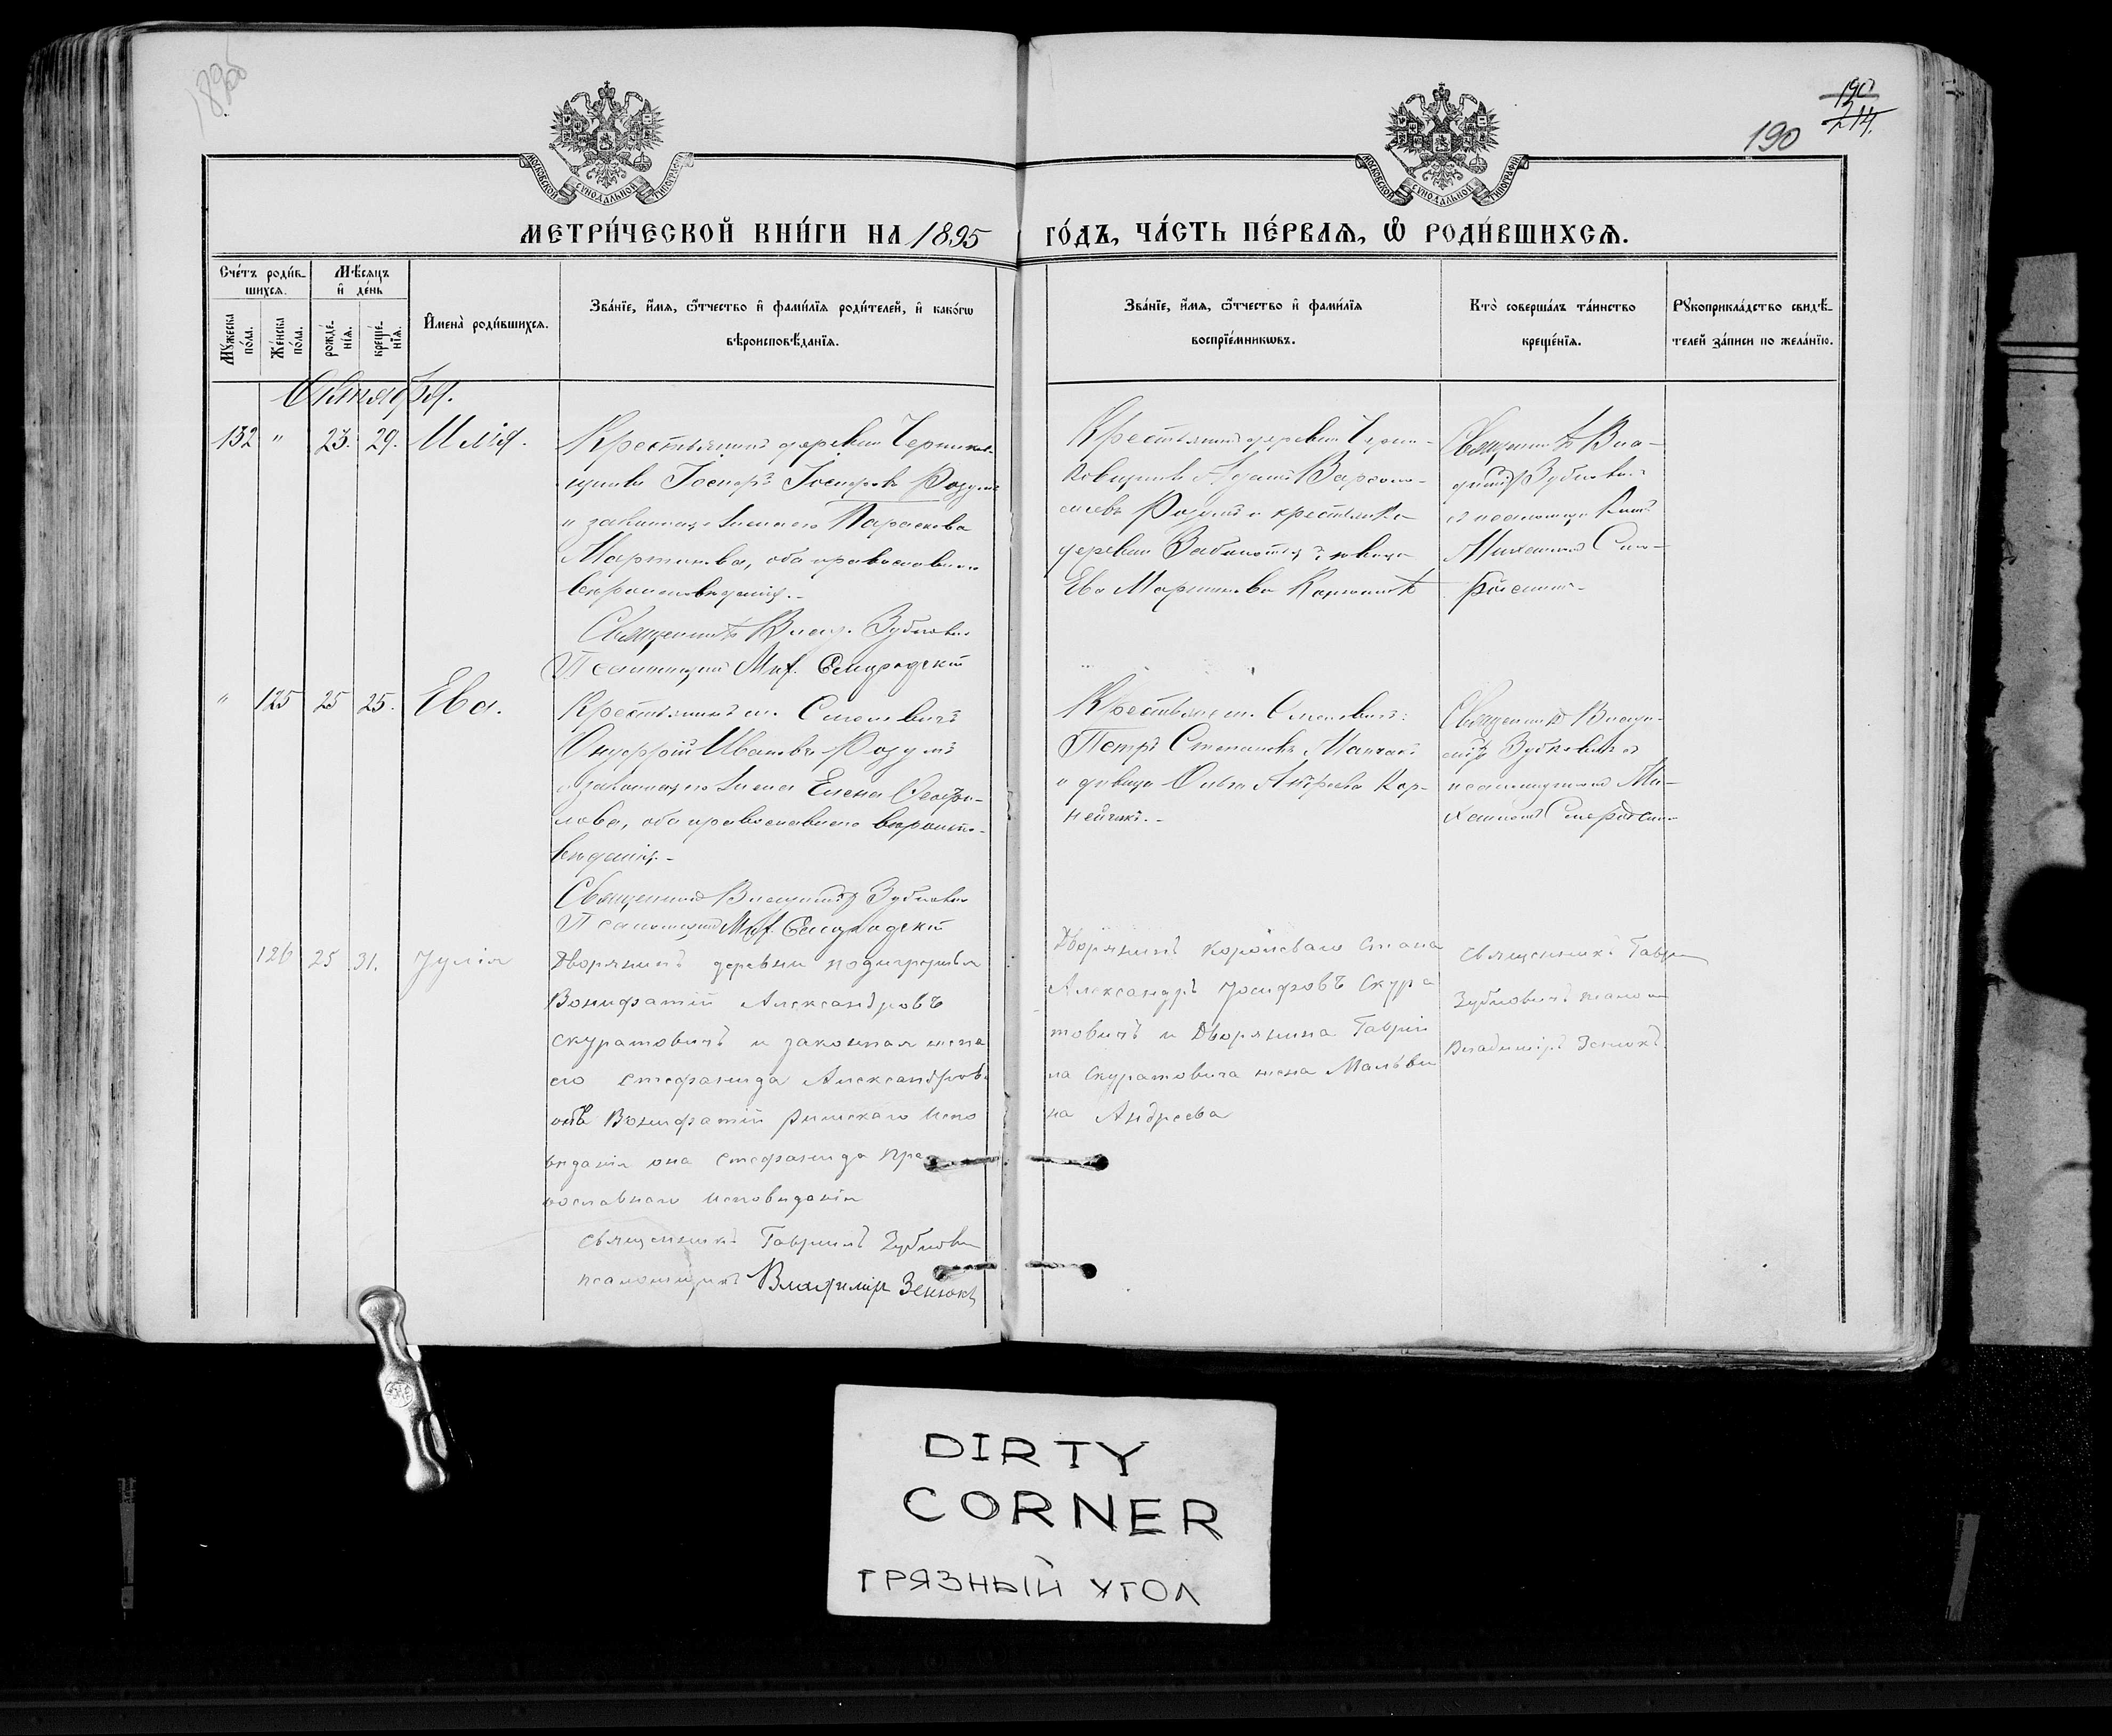 1895
190
214.
190
МОСКОВСКОЙ СУНОДАЛЬНОЙ ТИПОГРАФІИ
МОСКОВСКОЙ СУНОДАЛЬНОЙ ТИПОГРАФІИ
МЕТРИ́ЧЕСКОЙ КНИ́ГИ НА 1895 ГО́ДЪ, ЧА́СТЬ ПЕ́РВАѦ, Ѡ РОДИ́ВШИХСѦ.
Сче́тъ роди́в-
шихсѧ.
Му́жеска по́ла.
Же́нска по́ла.
Мѣ́сѧцъ
и҆ де́нь
рожде́-
нїѧ.
креще́-
нїѧ.
И҆мена̀ роди́вшихсѧ.
Зва́нїе, и҆́мѧ, ѻ҆́тчество и҆ фами́лїѧ роди́телей, и҆ како́гѡ
вѣроисповѣ́данїѧ.
Зва́нїе, и҆́мѧ, ѻ҆́тчество и҆ фами́лїѧ
воспрїе́мникѡвъ.
Кто̀ соверша́лъ та́инство
креще́нїѧ.
Рꙋкоприкла́дство свидѣ́-
телей за́писи по жела́нїю.
Октября.
132 " 23. 29. Илія.
Крестьянинъ деревни
Іосифъ Іосифовъ Розумъ
и законная жена его Параскева
Мартинова, оба православнаго
вероисповеданія.-
Священникъ Влад. Зубковичъ
Псаломщикъ Мих. Смородскій
Крестьянинъ деревни
Розумъ и крестьянка
деревни девица
Ева Мартинова
Священникъ Вла-
диміръ Зубковичъ
съ псаломщикомъ
Михаиломъ Смо-
родскимъ.
" 125 25 25. Ева.
Крестьянинъ
Онуфрій Ивановъ Розумъ
и законная его жена Елена
лова, оба православнаго вероиспо-
веданія.-
Священникъ Владиміръ Зубковичъ
Псаломщикъ Мих. Смородскій
Крестьяне
Петръ Степановъ
и девица Ольга Андреева Кор-
нейчикъ.-
Священникъ Влади-
міръ Зубковичъ съ
псаломщикомъ Ми-
хаиломъ Смородскимъ
126 25 31. Іулія
Дворянинъ деревни
Вонифатій Александровъ
Скуратовичъ и законная жена
его Стефанида Александрова
онъ Вонифатій Римскаго испо
веданія она Стефанида пра
вославнаго исповеданія
Священникъ Гавріилъ Зубкович
псаломщикъ Владиміръ Зенюкъ
Дворянинъ стана
Александръ Іосифовъ Скура
товичъ и Дворянина Гаврі
ла Скуратовича жена Мальви
на Андреева
Священникъ Гаврі
Зубковичъ псалом
Владиміръ Зенюкъ.
DIRTY
CORNER
ГРЯЗНЫЙ УГОЛ